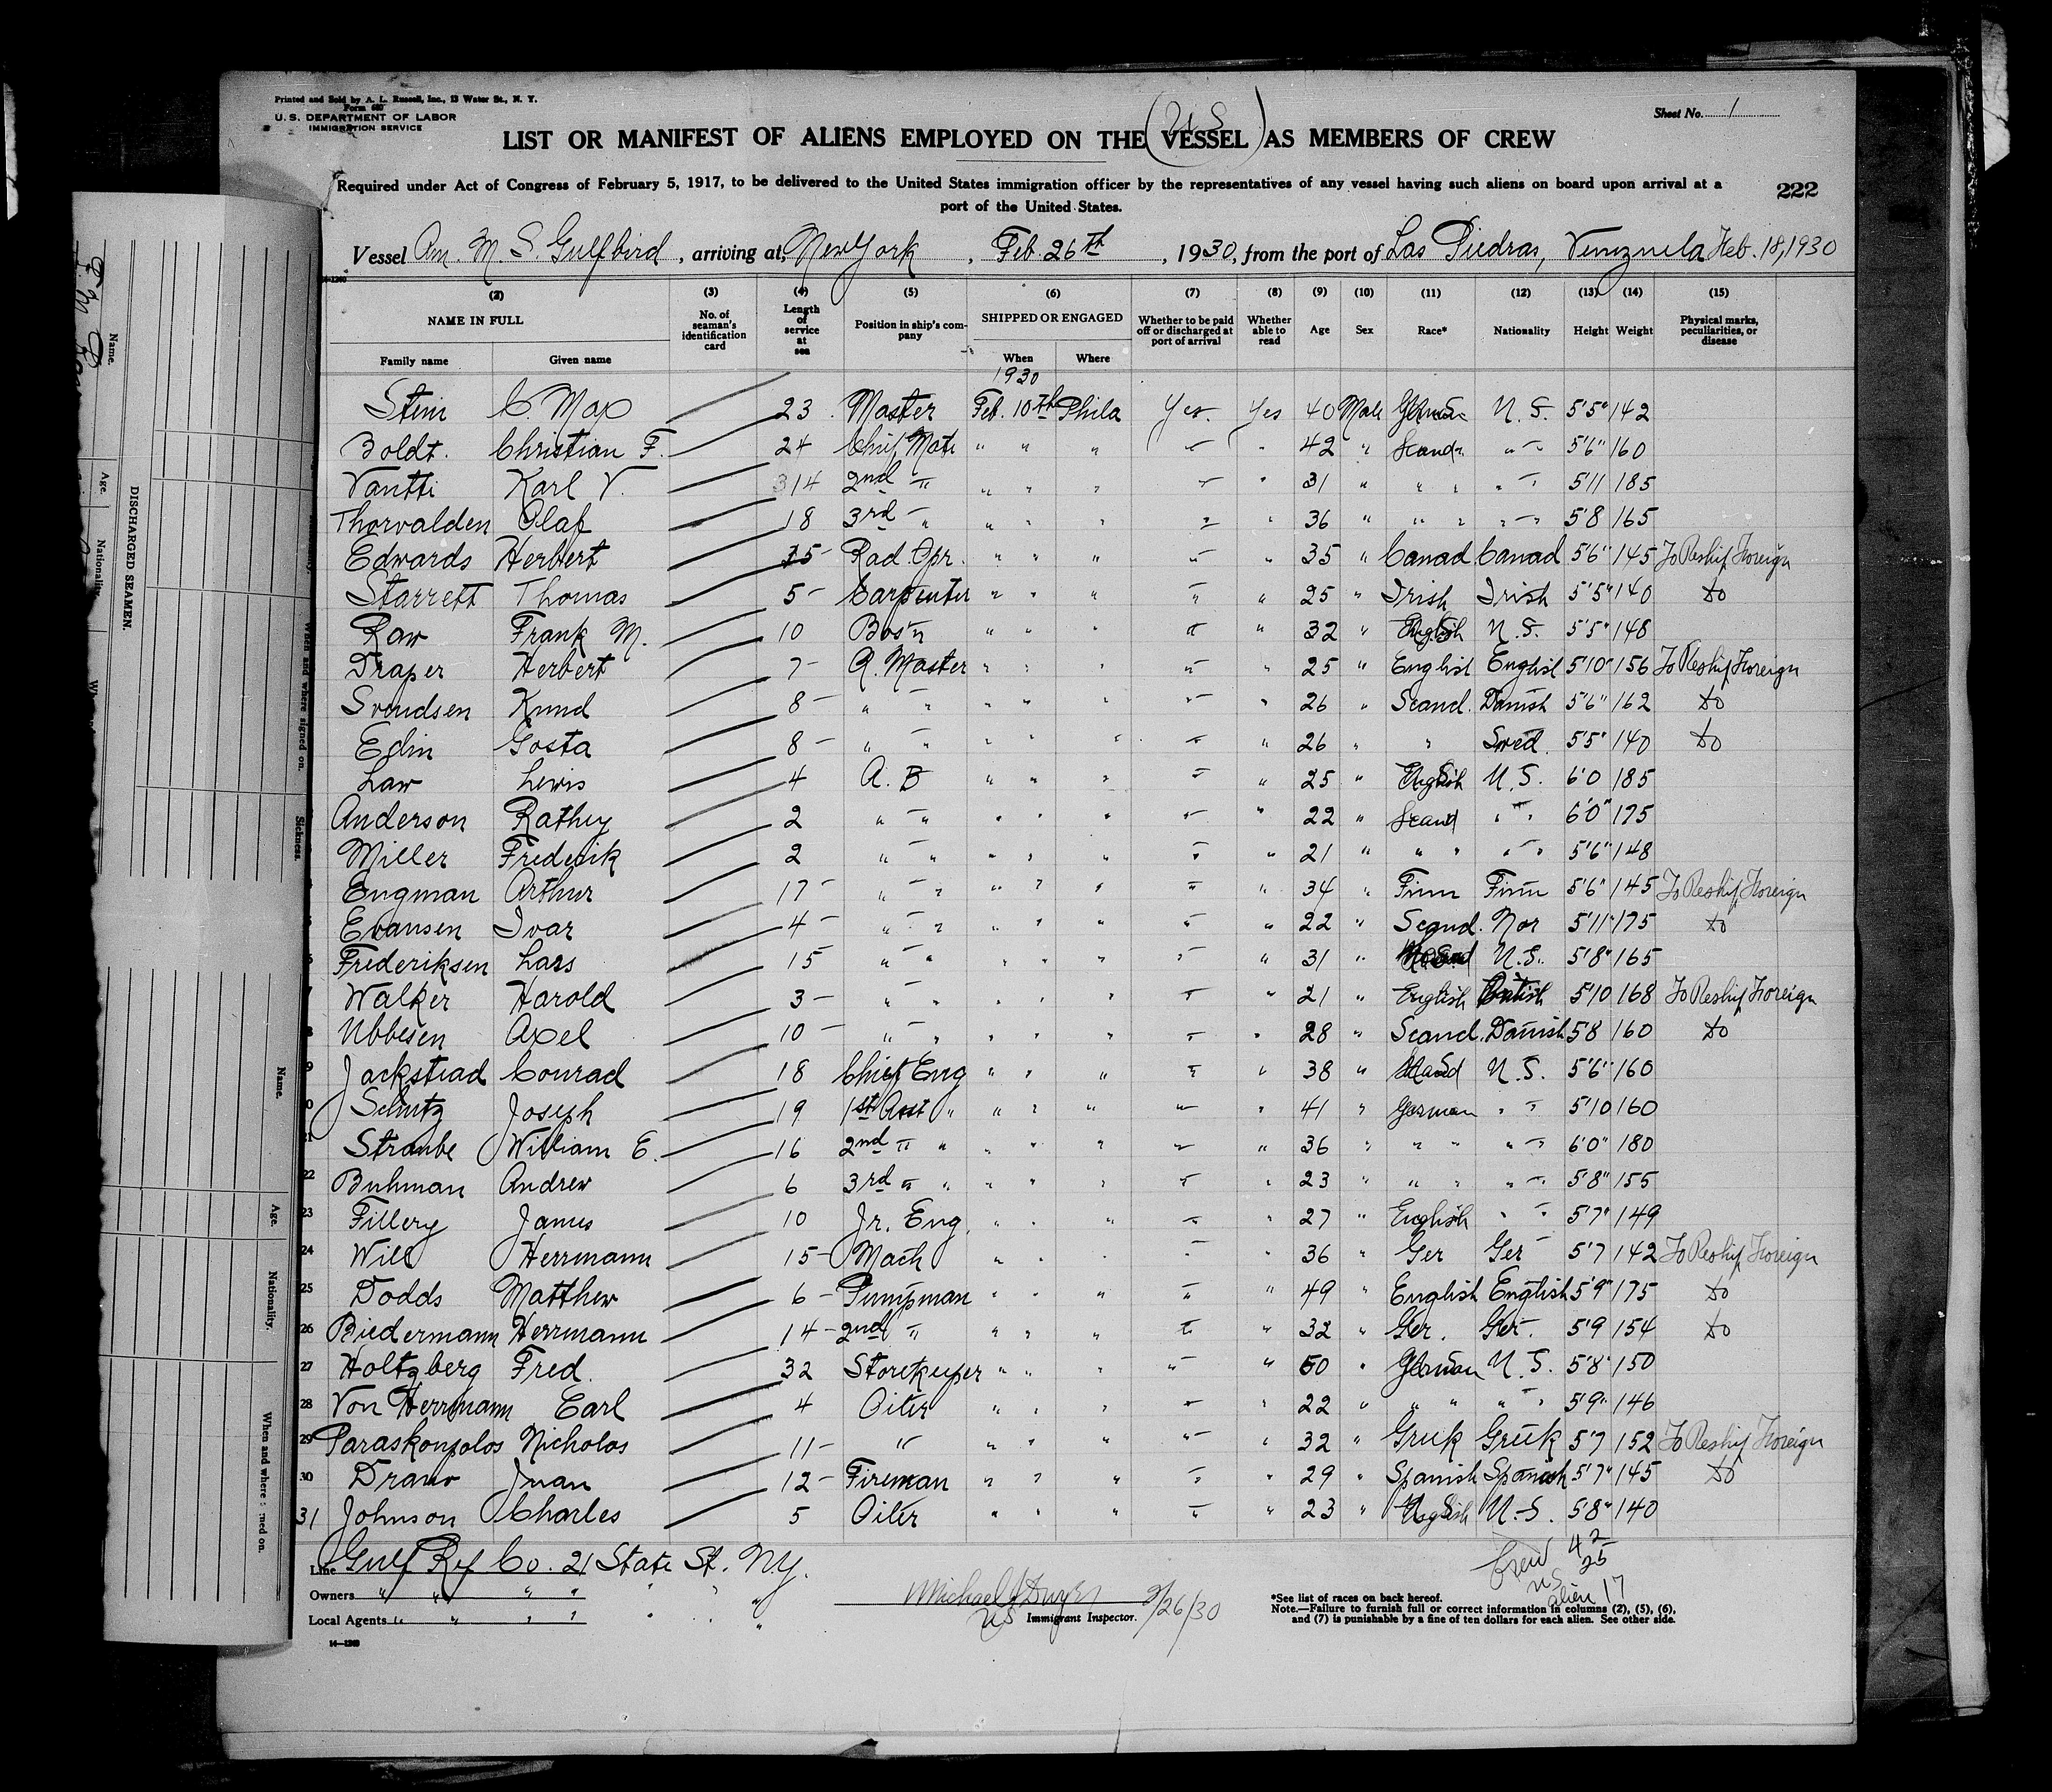 Printed and Sold by A. L. Russell, Inc., 13 Water St., N. Y.
Form 680
U. S. DEPARTMENT OF LABOR
IMMIGRATION SERVICE
Sheet No. 1
(U S)
LIST OR MANIFEST OF ALIENS EMPLOYED ON THE VESSEL AS MEMBERS OF CREW
Required under Act of Congress of February 5, 1917, to be delivered to the United States immigration officer by the representatives of any vessel having such aliens on board upon arrival at a
port of the United States.
222
Vessel Am. M. S. Gulfbird, arriving at New York, Feb. 26th, 1930, from the port of Las Piedras, Venezuela Feb. 18, 1930
(2) (3) (4) (5) (6) (7) (8) (9) (10) (11) (12) (13) (14) (15)
NAME IN FULL No. of seaman's identification card Length of service at sea Position in ship's company SHIPPED OR ENGAGED Whether to be paid off or discharged at port of arrival Whether able to read Age Sex Race* Nationality Height Weight Physical marks, peculiarities, or disease
Family name Given name When Where
1930
Stein C. Max 23 Master Feb. 10th Phila Yes Yes 40 Male German U. S. 5'5" 142
Boldt. Christian F. 24 Chief Mate " " " " " 42 " Scand. " " 5'6" 160
Vantti Karl V. 14 2nd " " " " " " 31 " " " " " 5'11 185
Thorvalden Olaf 18 3rd " " " " " " 36 " " " " " 5'8 165
Edwards Herbert 15 Rad. Opr. " " " " " 35 " Canad. Canad 5'6" 145 To Reship Foreign
Starrett Thomas 5 Carpenter " " " " " 25 " Irish Irish 5'5" 140 do
Raw Frank M. 10 Bos'n " " " " " 32 " English U. S. 5'5" 148
Draper Herbert 7 Q. Master " " " " " 25 " English English 5'10" 156 To Reship Foreign
Svendsen Knud 8 " " " " " " " 26 " Scand. Danish 5'6" 162 do
Edin Gosta 8 " " " " " " " 26 " " Swed. 5'5" 140 do
Law Lewis 4 A. B " " " " " 25 " English U. S. 6'0 185
Anderson Rathey 2 " " " " " " " 22 " Scand " " 6'0" 175
Miller Frederik 2 " " " " " " " 21 " " " " " 5'6" 148
Engman Arthur 17 " " " " " " " 34 " Finn Finn 5'6" 145 To Reship Foreign
Evansen Ivar 4 " " " " " " " 22 " Scand. Nor 5'11" 175 do
Frederiksen Lars 15 " " " " " " " 31 " U. S. 5'8" 165
Walker Harold 3 " " " " " " " 21 " English British 5'10 168 To Reship Foreign
Ubbesen Axel 10 " " " " " " " 28 " Scand. Danish 5'8 160 do
Jackstead Conrad 18 Chief Eng " " " " " 38 " Scand U. S. 5'6" 160
Schutz Joseph 19 1st Asst " " " " " " 41 " German " " 5'10 160
Straube William E. 16 2nd " " " " " " " 36 " " " " " 6'0" 180
22 Buhman Andrew 6 3rd " " " " " " " 23 " " " " " 5'8" 155
23 Fillery James 10 Jr. Eng. " " " " " 27 " English " " 5'7" 149
24 Will Herrmann 15 Mach " " " " " 36 " Ger Ger 5'7 142 To Reship Foreign
25 Dodds Matthew 6 Pumpman " " " " " 49 " English English 5'9" 175 do
26 Biedermann Herrmann 14 2nd " " " " " " 32 " Ger. Ger. 5'9 154 do
27 Holtzberg Fred. 32 Storekeeper " " " " " 50 " German U. S. 5'8" 150
28 Von Herrmann Earl 4 Oiler " " " " " 22 " " " " " 5'9" 146
29 Paraskopolos Nicholos 11 " " " " " " 32 " Greek Greek 5'7 152 To Reship Foreign
30 Juan 12 Fireman " " " " " 29 " Spanish Spanish 5'7" 145 do
31 Johnson Charles 5 Oiler " " " " " 23 " English U. S. 5'8" 140
Line Gulf Ref Co. 21 State St. N.Y.
Owners " " " "
Local Agents " " " "
14—1240
Michael J Dwyer 2/26/30
US Immigrant Inspector.
Crew 42
US 25
alien 17
*See list of races on back hereof.
Note.—Failure to furnish full or correct information in columns (2), (5), (6),
and (7) is punishable by a fine of ten dollars for each alien. See other side.
DISCHARGED SEAMEN.
Name. Age. Nationality.
When and where signed on.
Sickness.
Name. Age. Nationality. When and where signed on.